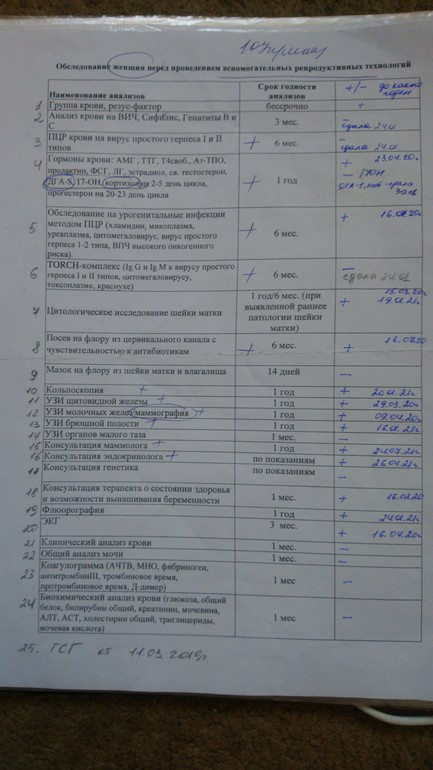 Обследование женщин перед проведением вспомогательных репродуктивных технологий
Наименование анализов Срок годности анализов +/- до какого
1 Группа крови, резус-фактор бессрочно +
2 Анализ крови на ВИЧ, Сифилис, Гепатиты В и С 3 мес. – сдала 24.01
3 ПЦР крови на вирус простого герпеса I и II типов + 6 мес. – сдала 24.01
4 Гормоны крови: АМГ, ТТГ, Т4своб., Ат-ТПО,
пролактин, ФСГ, ЛГ, эстрадиол, св. тестостерон,
ДГА-S, 17-ОН, кортизол на 2-5 день цикла,
прогестерон на 20-23 день цикла
+ 1 год + 23.04.20г
5 Обследование на урогенитальные инфекции
методом ПЦР (хламидии, микоплазма,
уреаплазма, цитомегаловирус, вирус простого
герпеса 1-2 типа, ВПЧ высокого онкогенного
риска).
+ 6 мес. +
6 TORCH-комплекс (Ig G и Ig M к вирусу простого
герпеса I и II типов, цитомегаловирусу,
токсоплазме, краснухе)
+ 6 мес. – сдала 24.01
7 Цитологическое исследование шейки матки 1 год/6 мес. (при
выявленной раннее
патологии шейки
матки)
15.03.20г
+ 19.01.21г
8 Посев на флору из цервикального канала с
чувствительностью к антибиотикам
+ 6 мес. + 16.07.20
9 Мазок на флору из шейки матки и влагалища 14 дней –
10 Кольпоскопия + 1 год + 20.01.21г
11 УЗИ щитовидной железы + 1 год + 29.03.20г
12 УЗИ молочных желез/маммография + 1 год + 09.04.20г
13 УЗИ брюшной полости + 1 год + 16.01.21г
14 УЗИ органов малого таза 1 мес. –
15 Консультация маммолога + 1 год + 24.07.21г
16 Консультация эндокринолога + по показаниям + 26.04.21г
17 Консультация генетика по показаниям –
18 Консультация терапевта о состоянии здоровья
и возможности вынашивания беременности
1 мес. + 16.02.20
19 Флюорография 1 год + 24.01.21г
20 ЭКГ 3 мес. + 16.04.20г
21 Клинический анализ крови 1 мес. –
22 Общий анализ мочи 1 мес. –
23 Коагулограмма (АЧТВ, МНО, фибриноген,
антитромбинIII, тромбиновое время,
протромбиновое время, Д-димер)
1 мес –
24 Биохимический анализ крови (глюкоза, общий
белок, билирубин общий, креатинин, мочевина,
АЛТ, АСТ, холестирин общий, триглицериды,
мочевая кислота)
1 мес –
25. ГСГ от 11.03.2015г